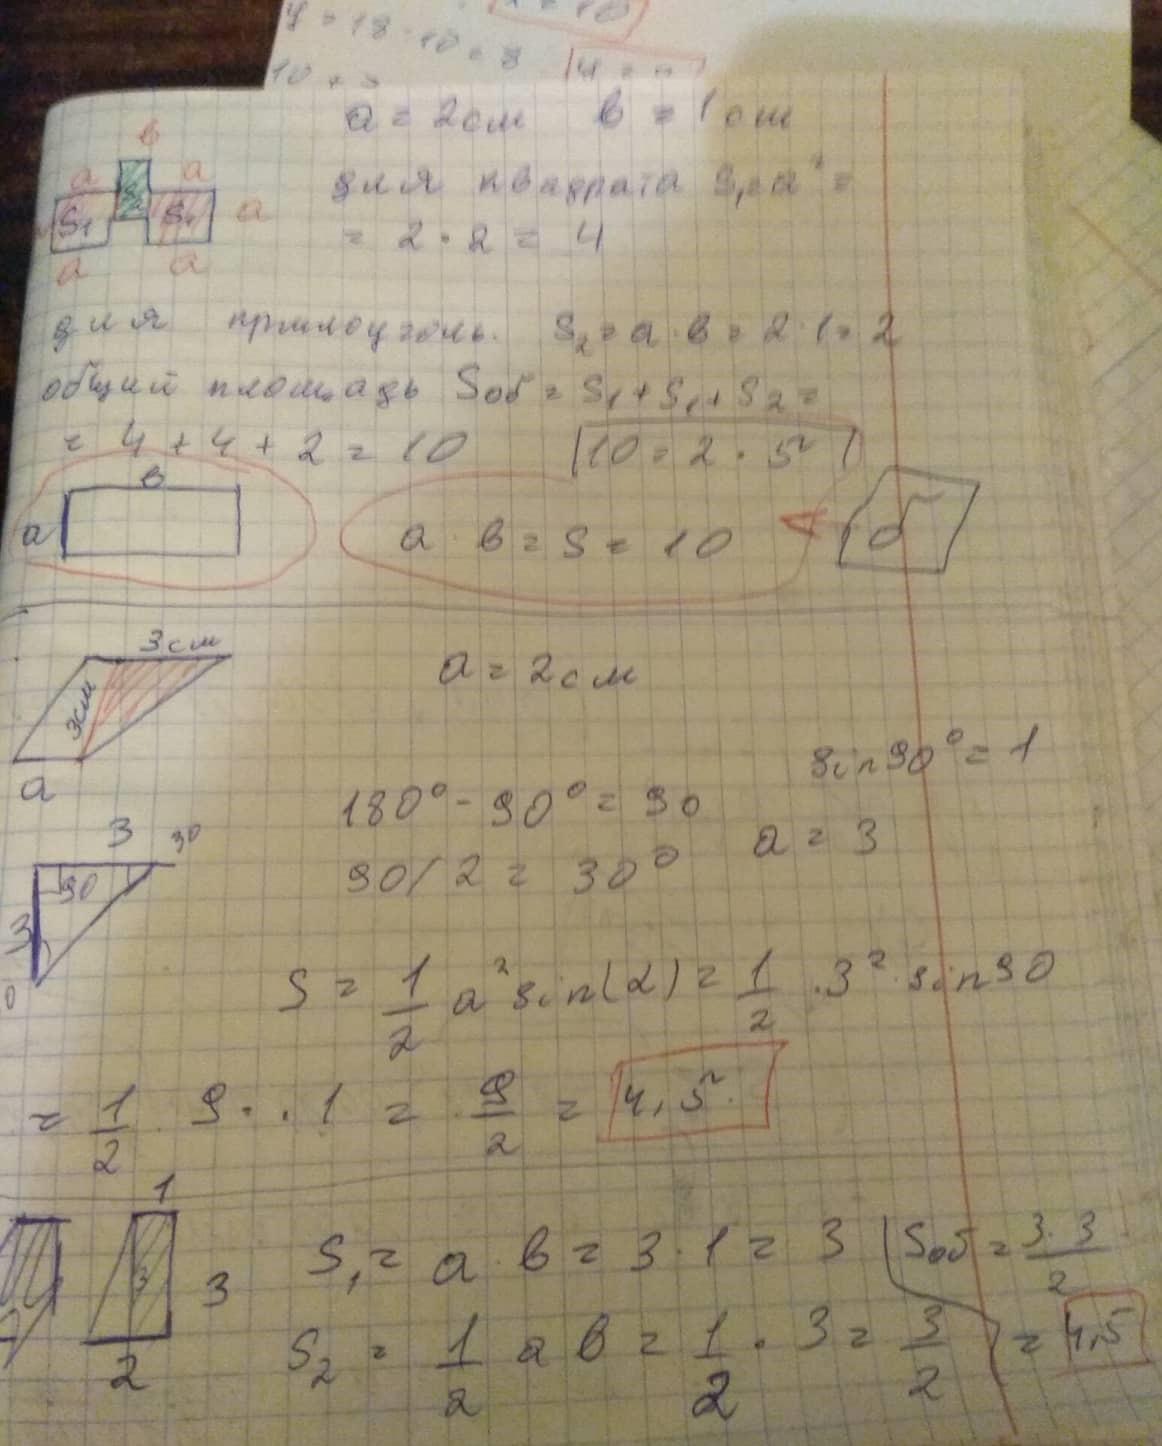 7 = 18 - 10 = 8
a = 2см в = 1см
в
a a
S1 S1 a
a a
для квадрата S1 = a² =
= 2 · 2 = 4
для прямоуголь. S2 = a · в = 2 · 1 = 2
общий площадь Sоб = S1 + S1 + S2 =
= 4 + 4 + 2 = 10 10 = 2 · 5
в
a a · в = S = 10
3см
3см
a
a = 2см
sin 90° = 1
180° - 90° = 90
a = 3
90/2 = 30°
3 30
90
3
S = 1/2 a² sin(2) = 1/2 · 3² · sin 90
= 1/2 · 9 · · 1 = 9/2 = 4,5
1
3 3
2
S1 = a · в = 3 · 1 = 3 Sоб = 3·3/2
S2 = 1/2 a в = 1/2 · 3 = 3/2 = 4,5